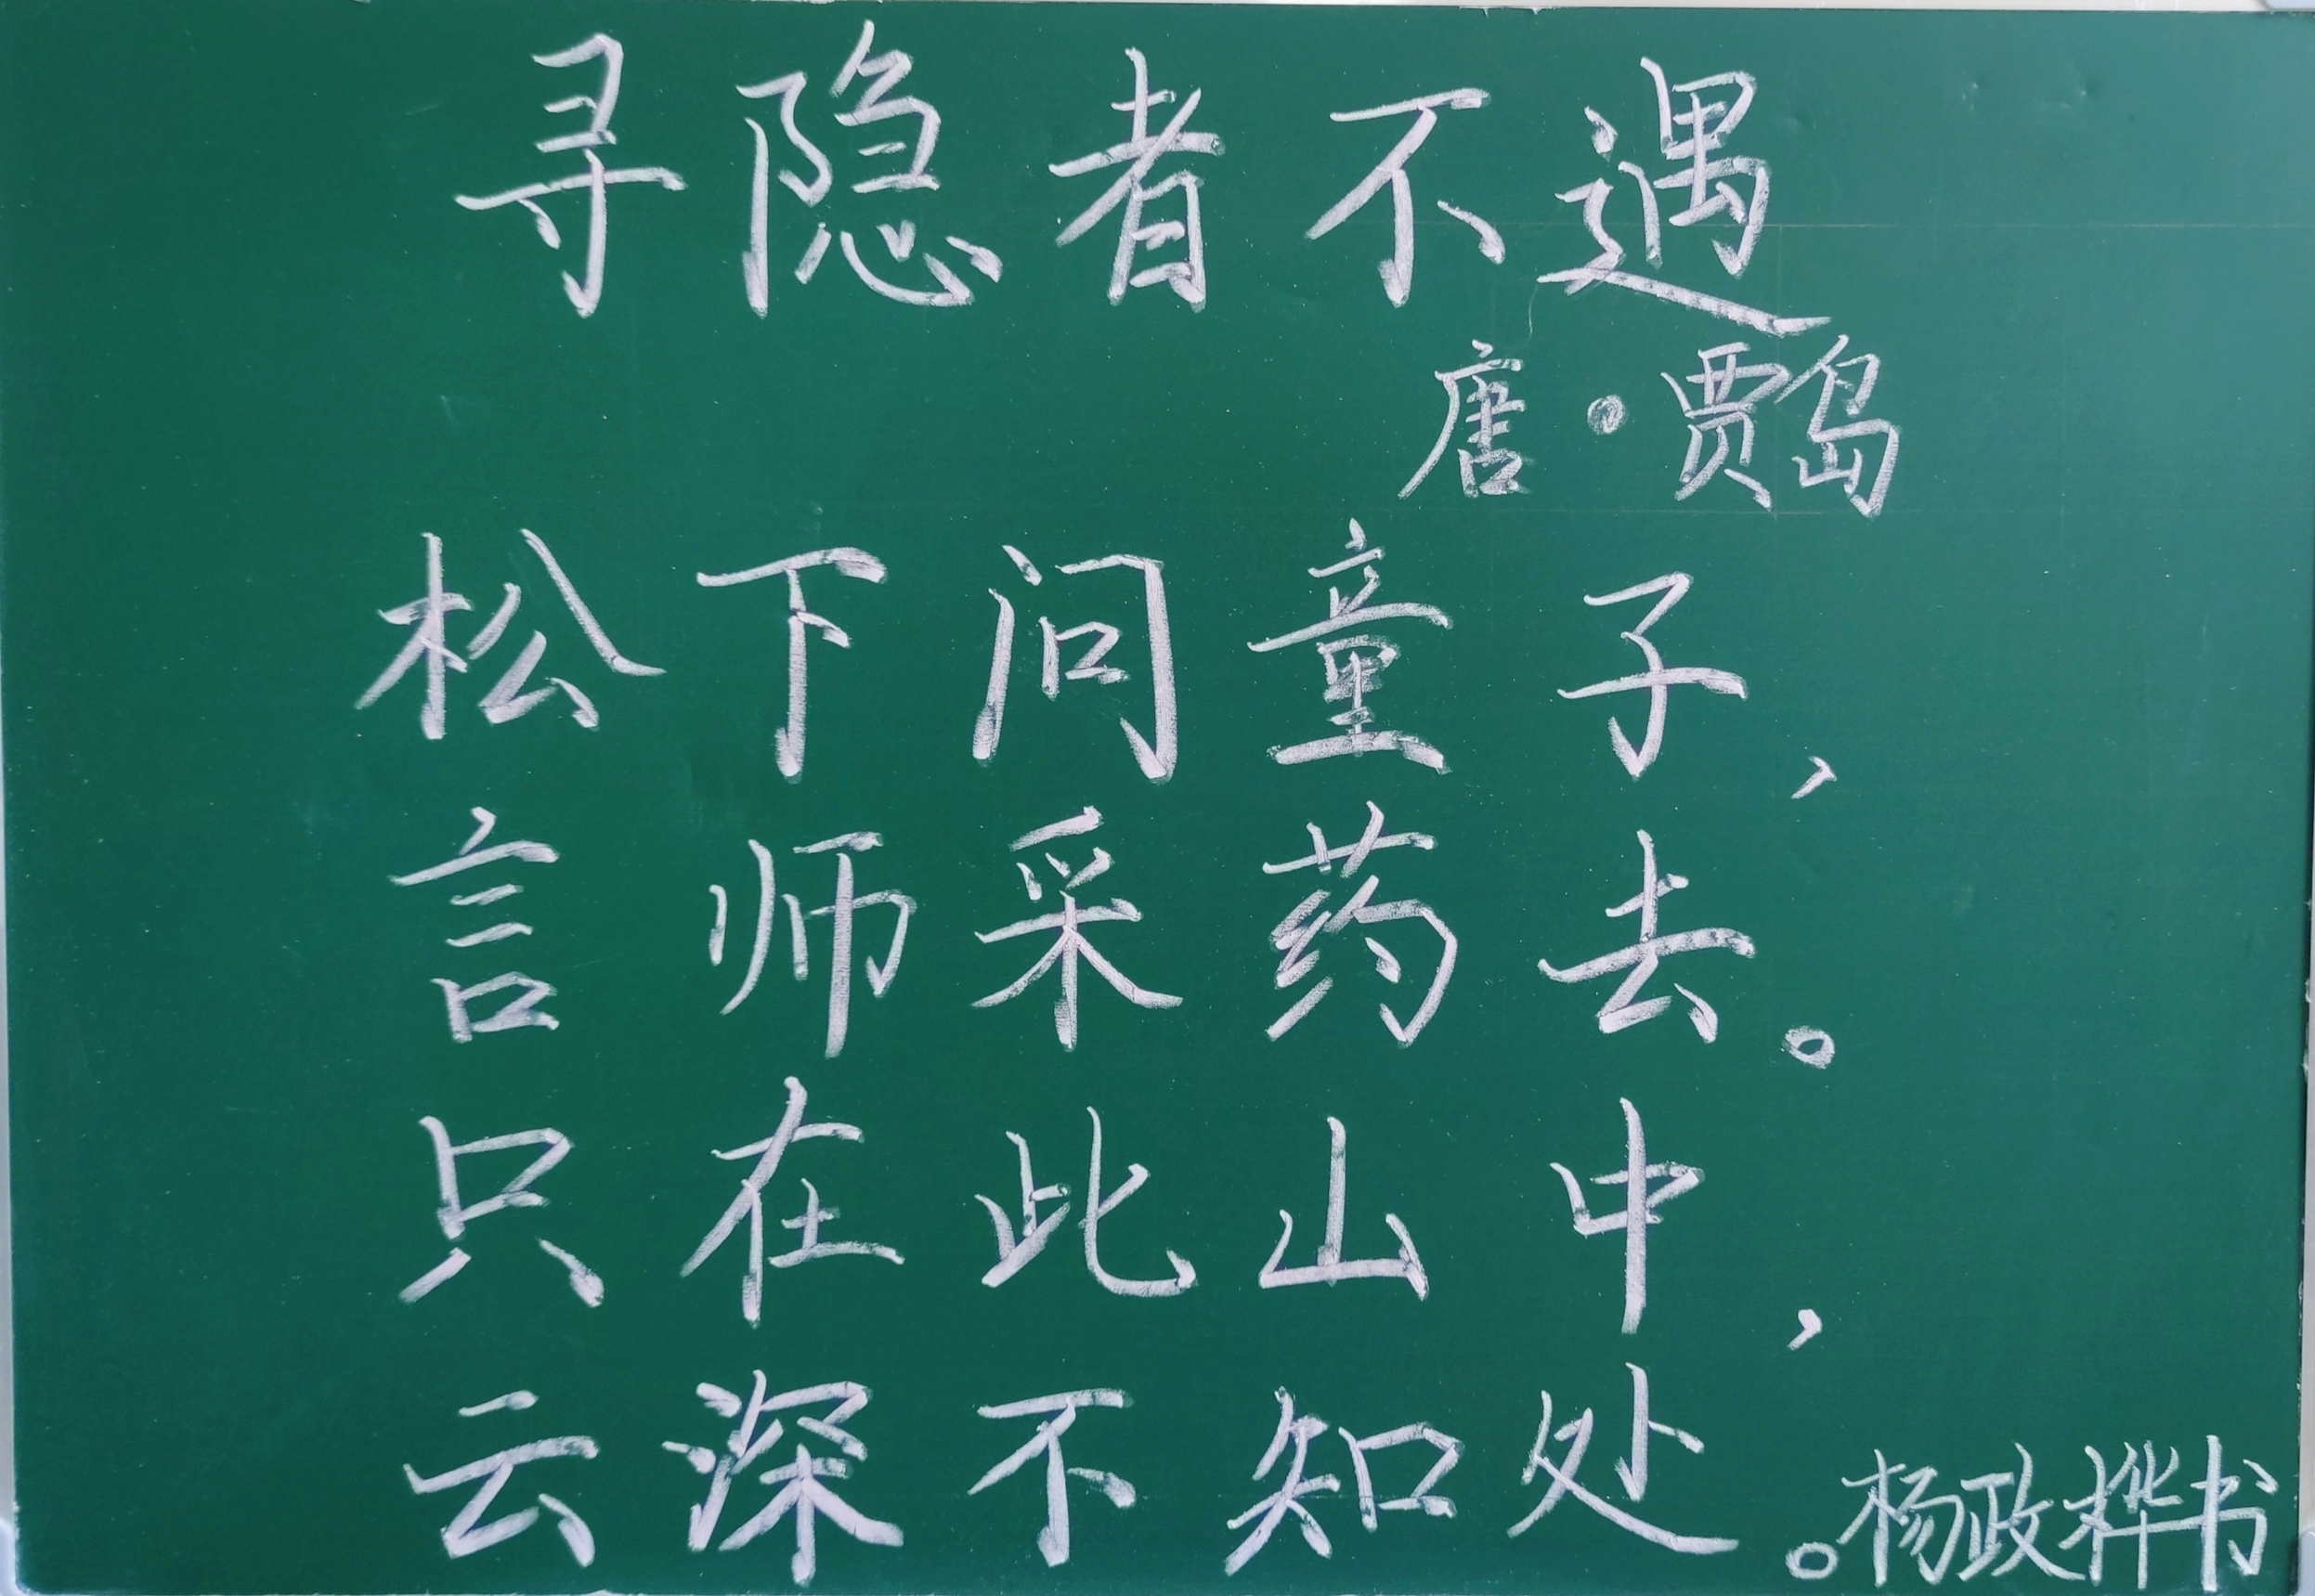 寻隐者不遇
唐·贾岛
松下问童子，
言师采药去。
只在此山中，
云深不知处。杨政桦书